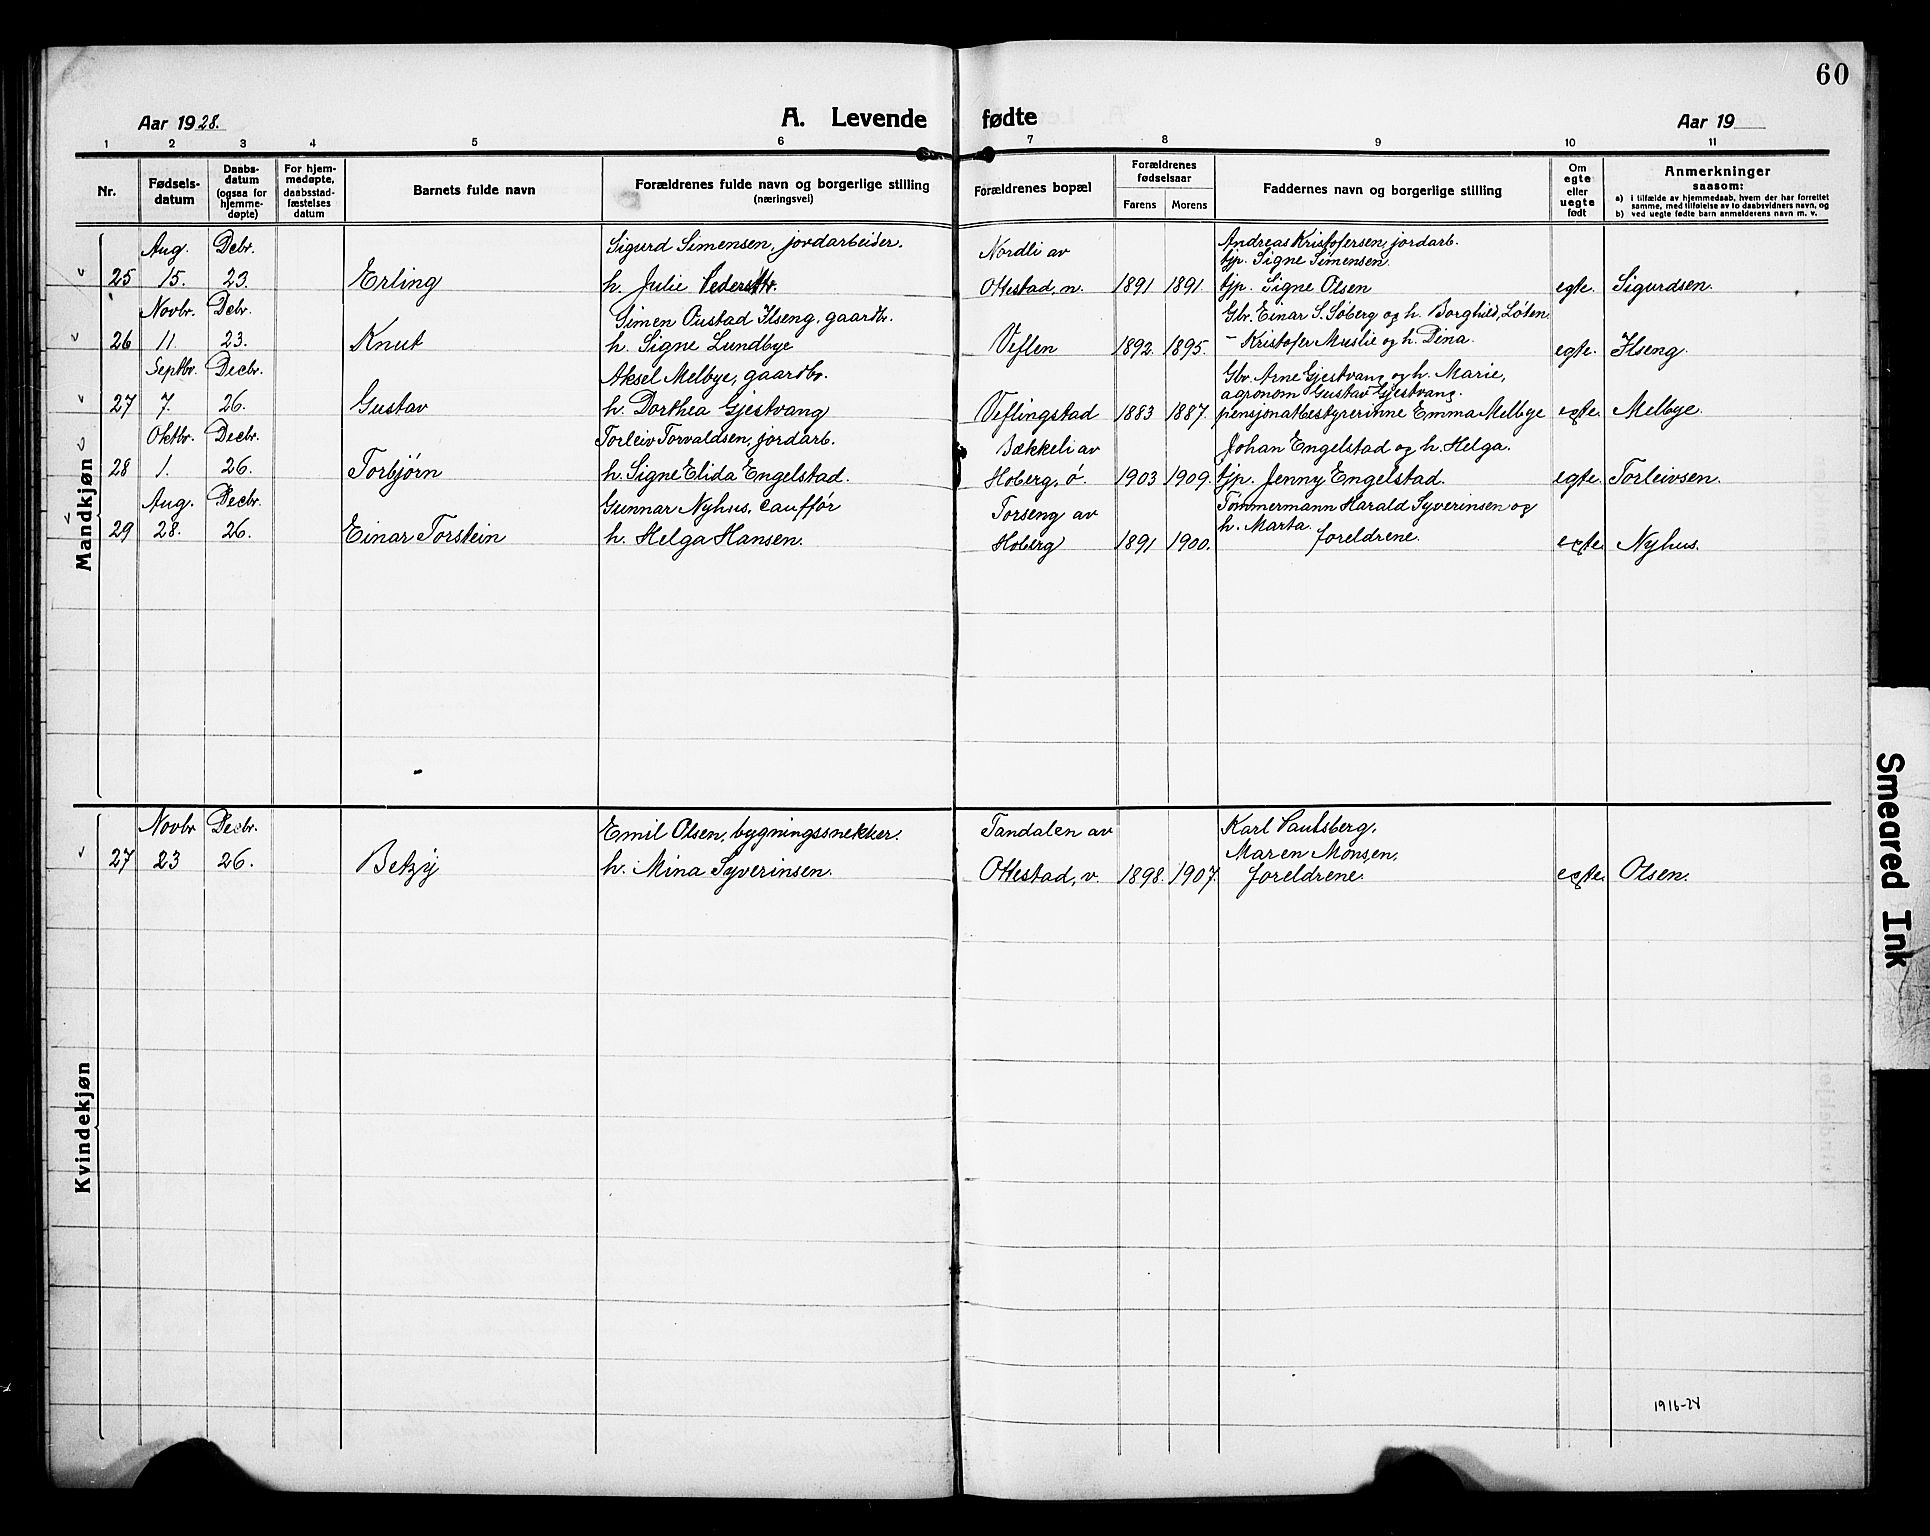 60
Aar 1928.
A. Levende fødte
Aar 19
1 2 3 4 5 6 7 8 9 10 11
Nr.
Fødsels-
datum
Daabs-
datum
(ogsaa for
hjemme-
døpte)
For hjem-
medøpte,
daabsstad-
fæstelses
datum
Barnets fulde navn
Forældrenes fulde navn og borgerlige stilling
(næringsvei)
Forældrenes bopæl
Forældrenes
fødselsaar
Farens Morens
Faddernes navn og borgerlige stilling
Om
egte
eller
uegte
født
Anmerkninger
saasom:
a) i tilfælde av hjemmedaab, hvem der har forrettet
samme, med tilføielse av to daabsvidners navn, og
b) ved uegte fødte barn anmelderens navn m. v.
Mandkjøn
Aug. Debr. Sigurd Simensen, jordarbeider. Nordli av Andreas Kristofersen, jordarb.
tjp. Signe Simensen.
25 15. 23. Erling h. Julie Ottestad, n. 1891 1891 tjp. Signe Olsen egte. Sigurdsen.
Novbr. Debr. Simen Oustad Ilseng, gaardbr. Gbr. Einar S. Søberg og h. Borghild, Løten
26 11 23. Knut h. Signe Lundbye Veflen 1892 1895. - Kristofer Muslie og h. Dina. egte. Ilseng.
Septbr. Decbr. Aksel Melbye, gaardbr. Gbr. Arne Gjestvang og h. Marie,
agronom Gustav Gjestvang.
27 7. 26. Gustav h. Dorthea Gjestvang Veflingstad 1883 1887. pensjonatbestyrerinne Emma Melbye egte. Melbye.
Oktbr. Decbr. Torleiv Torvaldsen, jordarb. Bækkeli av Johan Engelstad og h. Helga.
28 1. 26. Torbjørn h. Signe Elida Engelstad. Hoberg, ø 1903 1909. tjp. Jenny Engelstad. egte. Torleivsen.
Aug. Decbr. Gunnar Nyhus, cauffør Torseng av Tømmermann Harald Syverinsen og
h. Marta.
29 28. 26. Einar Torstein h. Helga Hansen. Hoberg 1891 1900. foreldrene. egte. Nyhus.
Kvindekjøn
Novbr Decbr. Emil Olsen, bygningssnekker. Tandalen av Karl Paulsberg.
Maren Monsen,
27 23 26. Betzy h. Mina Syverinsen. Ottestad, v. 1898. 1907. foreldrene. egte. Olsen.
1916-28
Smeared Ink